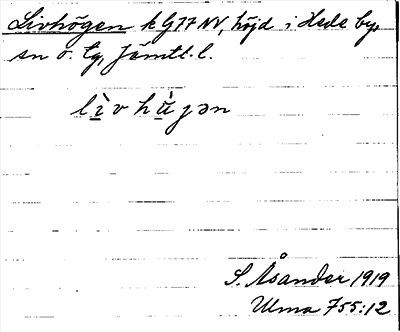 Livhögen k G77 NV, höjd i Hede by,
sn o. tg, Jämtl. l.
lìv hùjən
S. Åsander 1919
Ulma 755:12